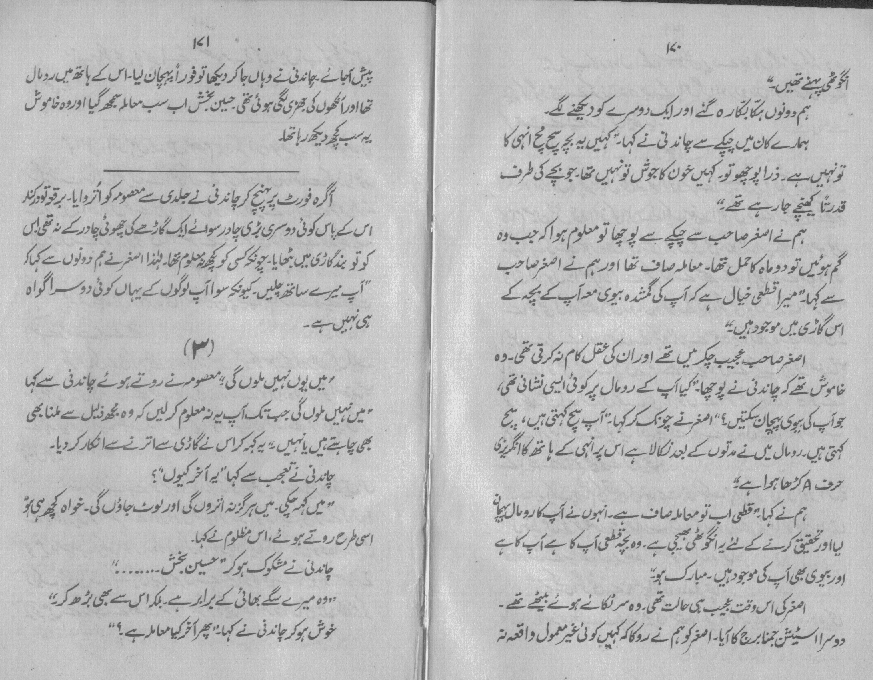 ۱۷۰
انگوٹھی پہنے تھیں۔"
ہم دونوں ہکا بکا رہ گئے اور ایک دوسرے کو دیکھنے لگے۔
ہمارے کان میں چپکے سے چاندنی نے کہا۔ "کہیں یہ بچہ سچ مچ انہی کا
تو نہیں ہے۔ ذرا پوچھو تو۔ کہیں خون کا جوش تو نہیں تھا۔ جو بچے کی طرف
قدرتاً کھنچے جا رہے تھے۔"
ہم نے اصغر صاحب سے چپکے سے پوچھا تو معلوم ہوا کہ جب وہ
گم ہوئیں تو دو ماہ کا حمل تھا۔ معاملہ صاف تھا اور ہم نے اصغر صاحب
سے کہا۔ "میرا قطعی خیال ہے کہ آپ کی گمشدہ بیوی معہ آپ کے بچہ کے
اس گاڑی میں موجود ہیں۔"
اصغر صاحب عجیب چکر میں تھے اور ان کی عقل کام نہ کرتی تھی۔ وہ
خاموش تھے کہ چاندنی نے پوچھا۔ "کیا آپ کے رومال پر کوئی ایسی نشانی تھی،
جو آپ کی بیوی پہچان سکتیں؟" اصغر نے چونک کر کہا۔ "آپ سچ کہتی ہیں، سچ
کہتی ہیں۔ رومال میں نے مدتوں کے بعد نکالا ہے اس پر انہی کے ہاتھ کا انگریزی
حرف A کڑھا ہوا ہے۔"
ہم نے کہا۔ "قطعی اب تو معاملہ صاف ہے۔ انہوں نے آپ کا رومال پہچان
لیا اور تحقیق کرنے کے لئے یہ انگوٹھی بھیجی ہے۔ وہ بچہ قطعی آپ کا ہے آپ کا ہے
اور بیوی بھی آپ کی موجود ہیں۔ مبارک ہو۔"
اصغر کی اس وقت عجیب ہی حالت تھی۔ وہ سر لٹکائے ہوئے بیٹھے تھے۔
دوسرا اسٹیشن جمنا برج کا آیا۔ اصغر کو ہم نے روکا کہ کہیں کوئی غیر معمولی واقعہ نہ
۱۷۱
پیش آ جائے۔ چاندنی نے وہاں جا کر دیکھا تو فوراً پہچان لیا۔ اس کے ہاتھ میں رومال
تھا اور آنکھوں کی جھڑی لگی ہوئی تھی۔ حسین بخش اب سب معاملہ سمجھ گیا اور وہ خاموش
یہ سب کچھ دیکھ رہا تھا۔
آگرہ فورٹ پر پہنچ کر چاندنی نے جلدی سے معصومہ کو اتروایا۔ برقع تو درکنار
اس کے پاس کوئی دوسری بڑی چادر سوائے ایک گاڑھے کی چھوٹی چادر کے نہ تھی! اس
کو تو بند گاڑی میں بٹھایا۔ چونکہ کسی کو کچھ نہ معلوم تھا۔ لہٰذا اصغر نے ہم دونوں سے کہا کہ
"آپ میرے ساتھ چلیں۔ کیونکہ سوا آپ لوگوں کے یہاں کوئی دوسرا گواہ
ہی نہیں ہے۔
(۳)
"میں یوں نہیں ملوں گی"۔ معصومہ نے روتے ہوئے چاندنی سے کہا
"میں نہیں ملوں گی جب تک آپ یہ نہ معلوم کر لیں کہ وہ مجھ ذلیل سے ملنا بھی
بھی چاہتے ہیں یا نہیں"۔ یہ کہہ کر اس نے گاڑی سے اترنے سے انکار کر دیا۔
چاندنی نے تعجب سے کہا "یہ آخر کیوں"؟
"میں کہہ چکی۔ میں ہرگز نہ اتروں گی اور لوٹ جاؤں گی۔ خواہ کچھ ہی ہو"
اسی طرح روتے ہوئے، اس مظلوم نے کہا۔
چاندنی نے مشکوک ہو کر "حسین بخش۔۔۔۔۔۔۔"
"وہ میرے سگے بھائی کے برابر ہے۔ بلکہ اس سے بھی بڑھ کر۔"
خوش ہو کر چاندنی نے کہا۔ "پھر آخر کیا معاملہ ہے؟"